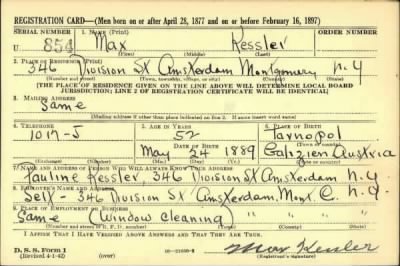 REGISTRATION CARD—(Men born on or after April 28, 1877 and on or before February 16, 1897)
SERIAL NUMBER 1. NAME (Print) ORDER NUMBER
U 854 Max Kessler
(First) (Middle) (Last)
2. PLACE OF RESIDENCE (Print)
346 Division St Amsterdam Montgomery N.Y
(Number and street) (Town, township, village, or city) (County) (State)
[THE PLACE OF RESIDENCE GIVEN ON THE LINE ABOVE WILL DETERMINE LOCAL BOARD
JURISDICTION; LINE 2 OF REGISTRATION CERTIFICATE WILL BE IDENTICAL]
3. MAILING ADDRESS
Same
(Mailing address if other than place indicated on line 2. If same insert word same)
4. TELEPHONE 5. AGE IN YEARS 6. PLACE OF BIRTH
1017-J 52 Tarnopol
DATE OF BIRTH (Town or county)
May 24 1889 Galizien Austria
(Exchange) (Number) (Mo.) (Day) (Yr.) (State or country)
7. NAME AND ADDRESS OF PERSON WHO WILL ALWAYS KNOW YOUR ADDRESS
Pauline Kessler, 346 Division St Amsterdam, N.Y.
8. EMPLOYER'S NAME AND ADDRESS
Self - 346 Division St Amsterdam, Mont. C. N.Y.
9. PLACE OF EMPLOYMENT OR BUSINESS
Same (Window cleaning)
(Number and street or R. F. D. number) (Town) (County) (State)
I AFFIRM THAT I HAVE VERIFIED ABOVE ANSWERS AND THAT THEY ARE TRUE.
D. S. S. Form 1
(Revised 4-1-42) (over) Max Kessler
(Registrant's signature)